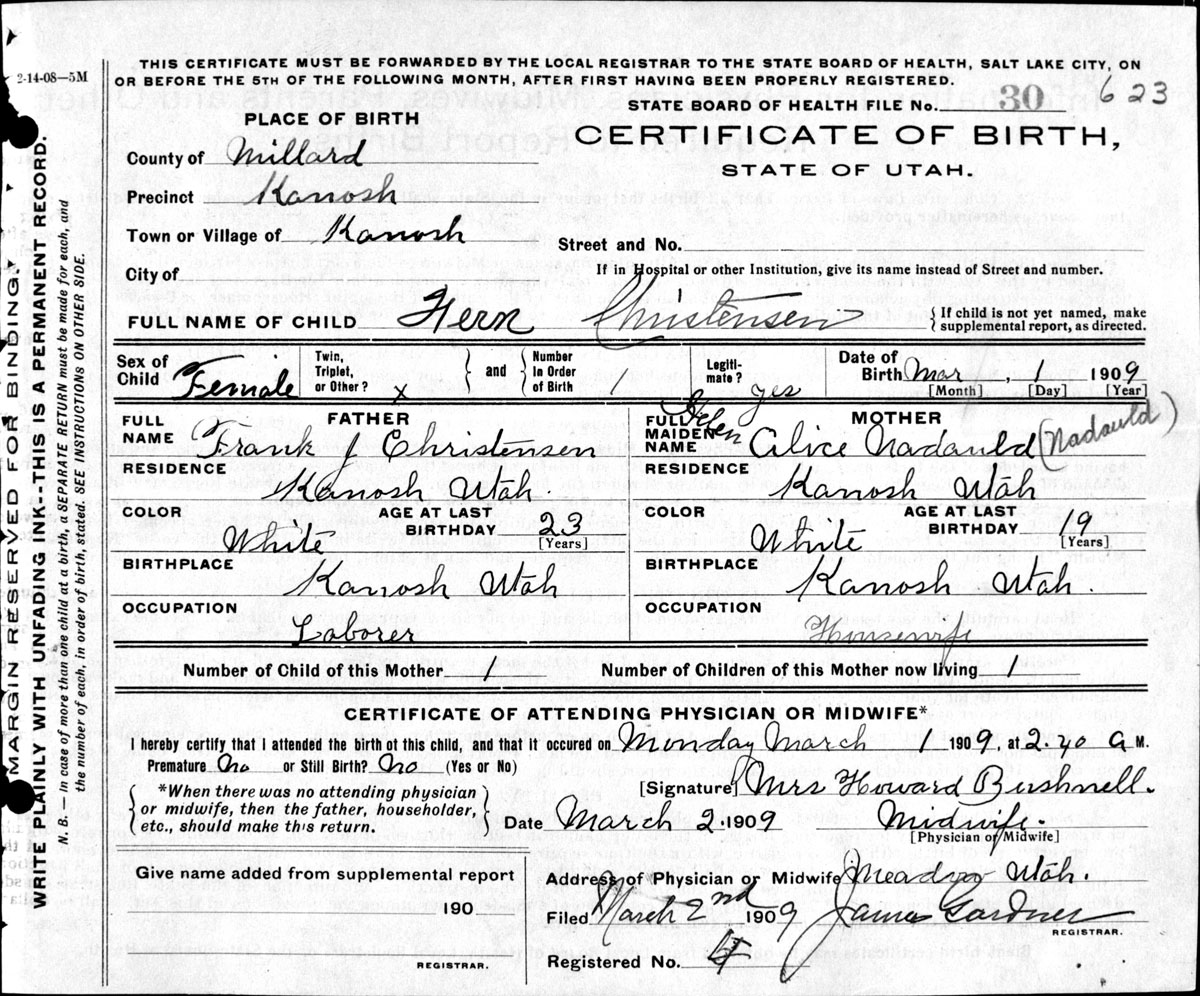 2-14-08—5M
THIS CERTIFICATE MUST BE FORWARDED BY THE LOCAL REGISTRAR TO THE STATE BOARD OF HEALTH, SALT LAKE CITY, ON
OR BEFORE THE 5TH OF THE FOLLOWING MONTH, AFTER FIRST HAVING BEEN PROPERLY REGISTERED.
STATE BOARD OF HEALTH FILE No. 30 623
PLACE OF BIRTH
CERTIFICATE OF BIRTH,
STATE OF UTAH.
County of Millard
Precinct Kanosh
Town or Village of Kanosh
Street and No.
City of
If in Hospital or other Institution, give its name instead of Street and number.
FULL NAME OF CHILD Fern Christensen { If child is not yet named, make
supplemental report, as directed.
Sex of Child Female
Twin, Triplet, or Other? x } and { Number In Order of Birth 1
Legiti- mate? yes
Date of Birth Mar, 1 1909
[Month] [Day] [Year]
FATHER
FULL NAME Frank J Christensen
RESIDENCE
Kanosh Utah.
COLOR White
AGE AT LAST BIRTHDAY 23
[Years]
BIRTHPLACE
Kanosh Utah
OCCUPATION
Laborer
MOTHER
FULL MAIDEN NAME Helen Alice Nadauld (Nadauld)
RESIDENCE
Kanosh Utah
COLOR White
AGE AT LAST BIRTHDAY 19
[Years]
BIRTHPLACE
Kanosh Utah.
OCCUPATION
Housewife
Number of Child of this Mother 1
Number of Children of this Mother now living 1
CERTIFICATE OF ATTENDING PHYSICIAN OR MIDWIFE*
I hereby certify that I attended the birth of this child, and that it occured on Monday March 1 1909, at 2.40 a M.
Premature No or Still Birth? No (Yes or No)
*When there was no attending physician
or midwife, then the father, householder,
etc., should make this return.
[Signature] Mrs Howard Bushnell.
Date March 2. 1909 Midwife.
[Physician or Midwife]
Give name added from supplemental report
190
REGISTRAR.
Address of Physician or Midwife Meadow Utah.
Filed March 2nd 1909 James Gardner
REGISTRAR.
Registered No. 4
MARGIN RESERVED FOR BINDING.
WRITE PLAINLY WITH UNFADING INK--THIS IS A PERMANENT RECORD.
N. B.— In case of more than one child at a birth, a SEPARATE RETURN must be made for each, and
the number of each, in order of birth, stated. SEE INSTRUCTIONS ON OTHER SIDE.